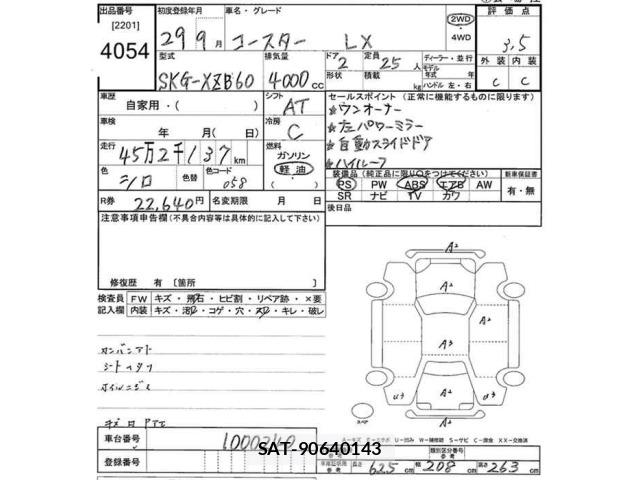 出品番号 初度登録年月 車名・グレード 2WD 評価点
[2201] 29 9月 コースター LX 4WD 3.5
4054
型式 排気量 ドア 定員 ディーラー・並行 外装 内装
SKG-XZB60 4000cc 2 25人 モデル年式 年
形状 積載 kg ハンドル 左・右 C C
車歴 シフト セールスポイント(正常に機能するものに限ります)
自家用・( ) AT ☆ワンオーナー
車検 冷房 ☆左パワーミラー
年 月(日) C ☆自動スライドドア
走行 燃料 ☆ハイルーフ
45万2千137km ガソリン
軽油
色 色替 色コード 装備品(純正品に限り○をつけてください) 新車保証書
シロ 058 PS PW ABS エアB AW 有・無
SR ナビ TV カワ
R券 22,640円 名変期限 月 日 後日品
注意事項申告欄(不具合内容等は具体的に記入して下さい)
修復歴 有 [箇所 ]
検査員 FW キズ・飛石・ヒビ割・リペア跡・×要
記入欄 内装 キズ・汚レ・コゲ・穴・スレ・キレ・破レ
A2
A2
A2
A3
U3 A2 U3
A2
スペア
車台番号 1000240
SAT-90640143
登録番号 長さ 625cm 幅 208cm 高さ 263cm